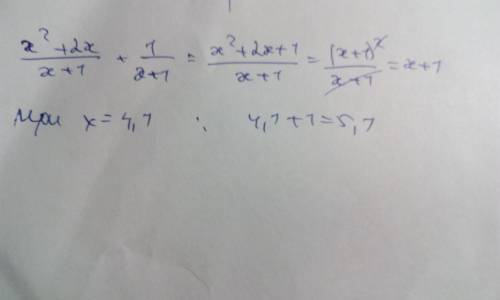 (x²+2x)/(x+1) + 1/(x+1) = (x²+2x+1)/(x+1) = (x+1)²/(x+1) = x+1
При x=4,1 : 4,1+1=5,1